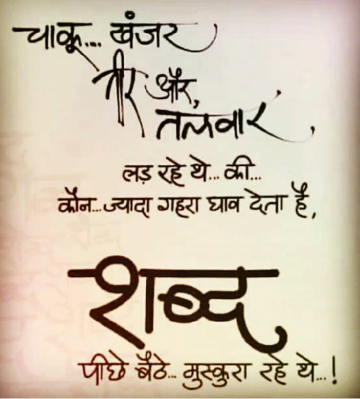 चाकू... खंजर
तीर और,
तलवार,
लड़ रहे थे... की...
कौन...ज्यादा गहरा घाव देता है,
शब्द
पीछे बैठे... मुस्कुरा रहे थे...!